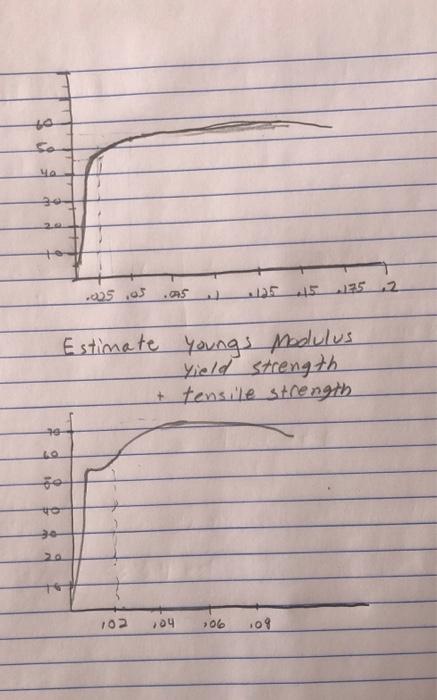 60
50
40
30
20
10
.025 .05 .075 .1 .125 .15 .175 .2
Estimate Youngs Modulus
Yield strength
+ tensile strength
70
60
50
40
30
20
10
.02 .04 .06 .08